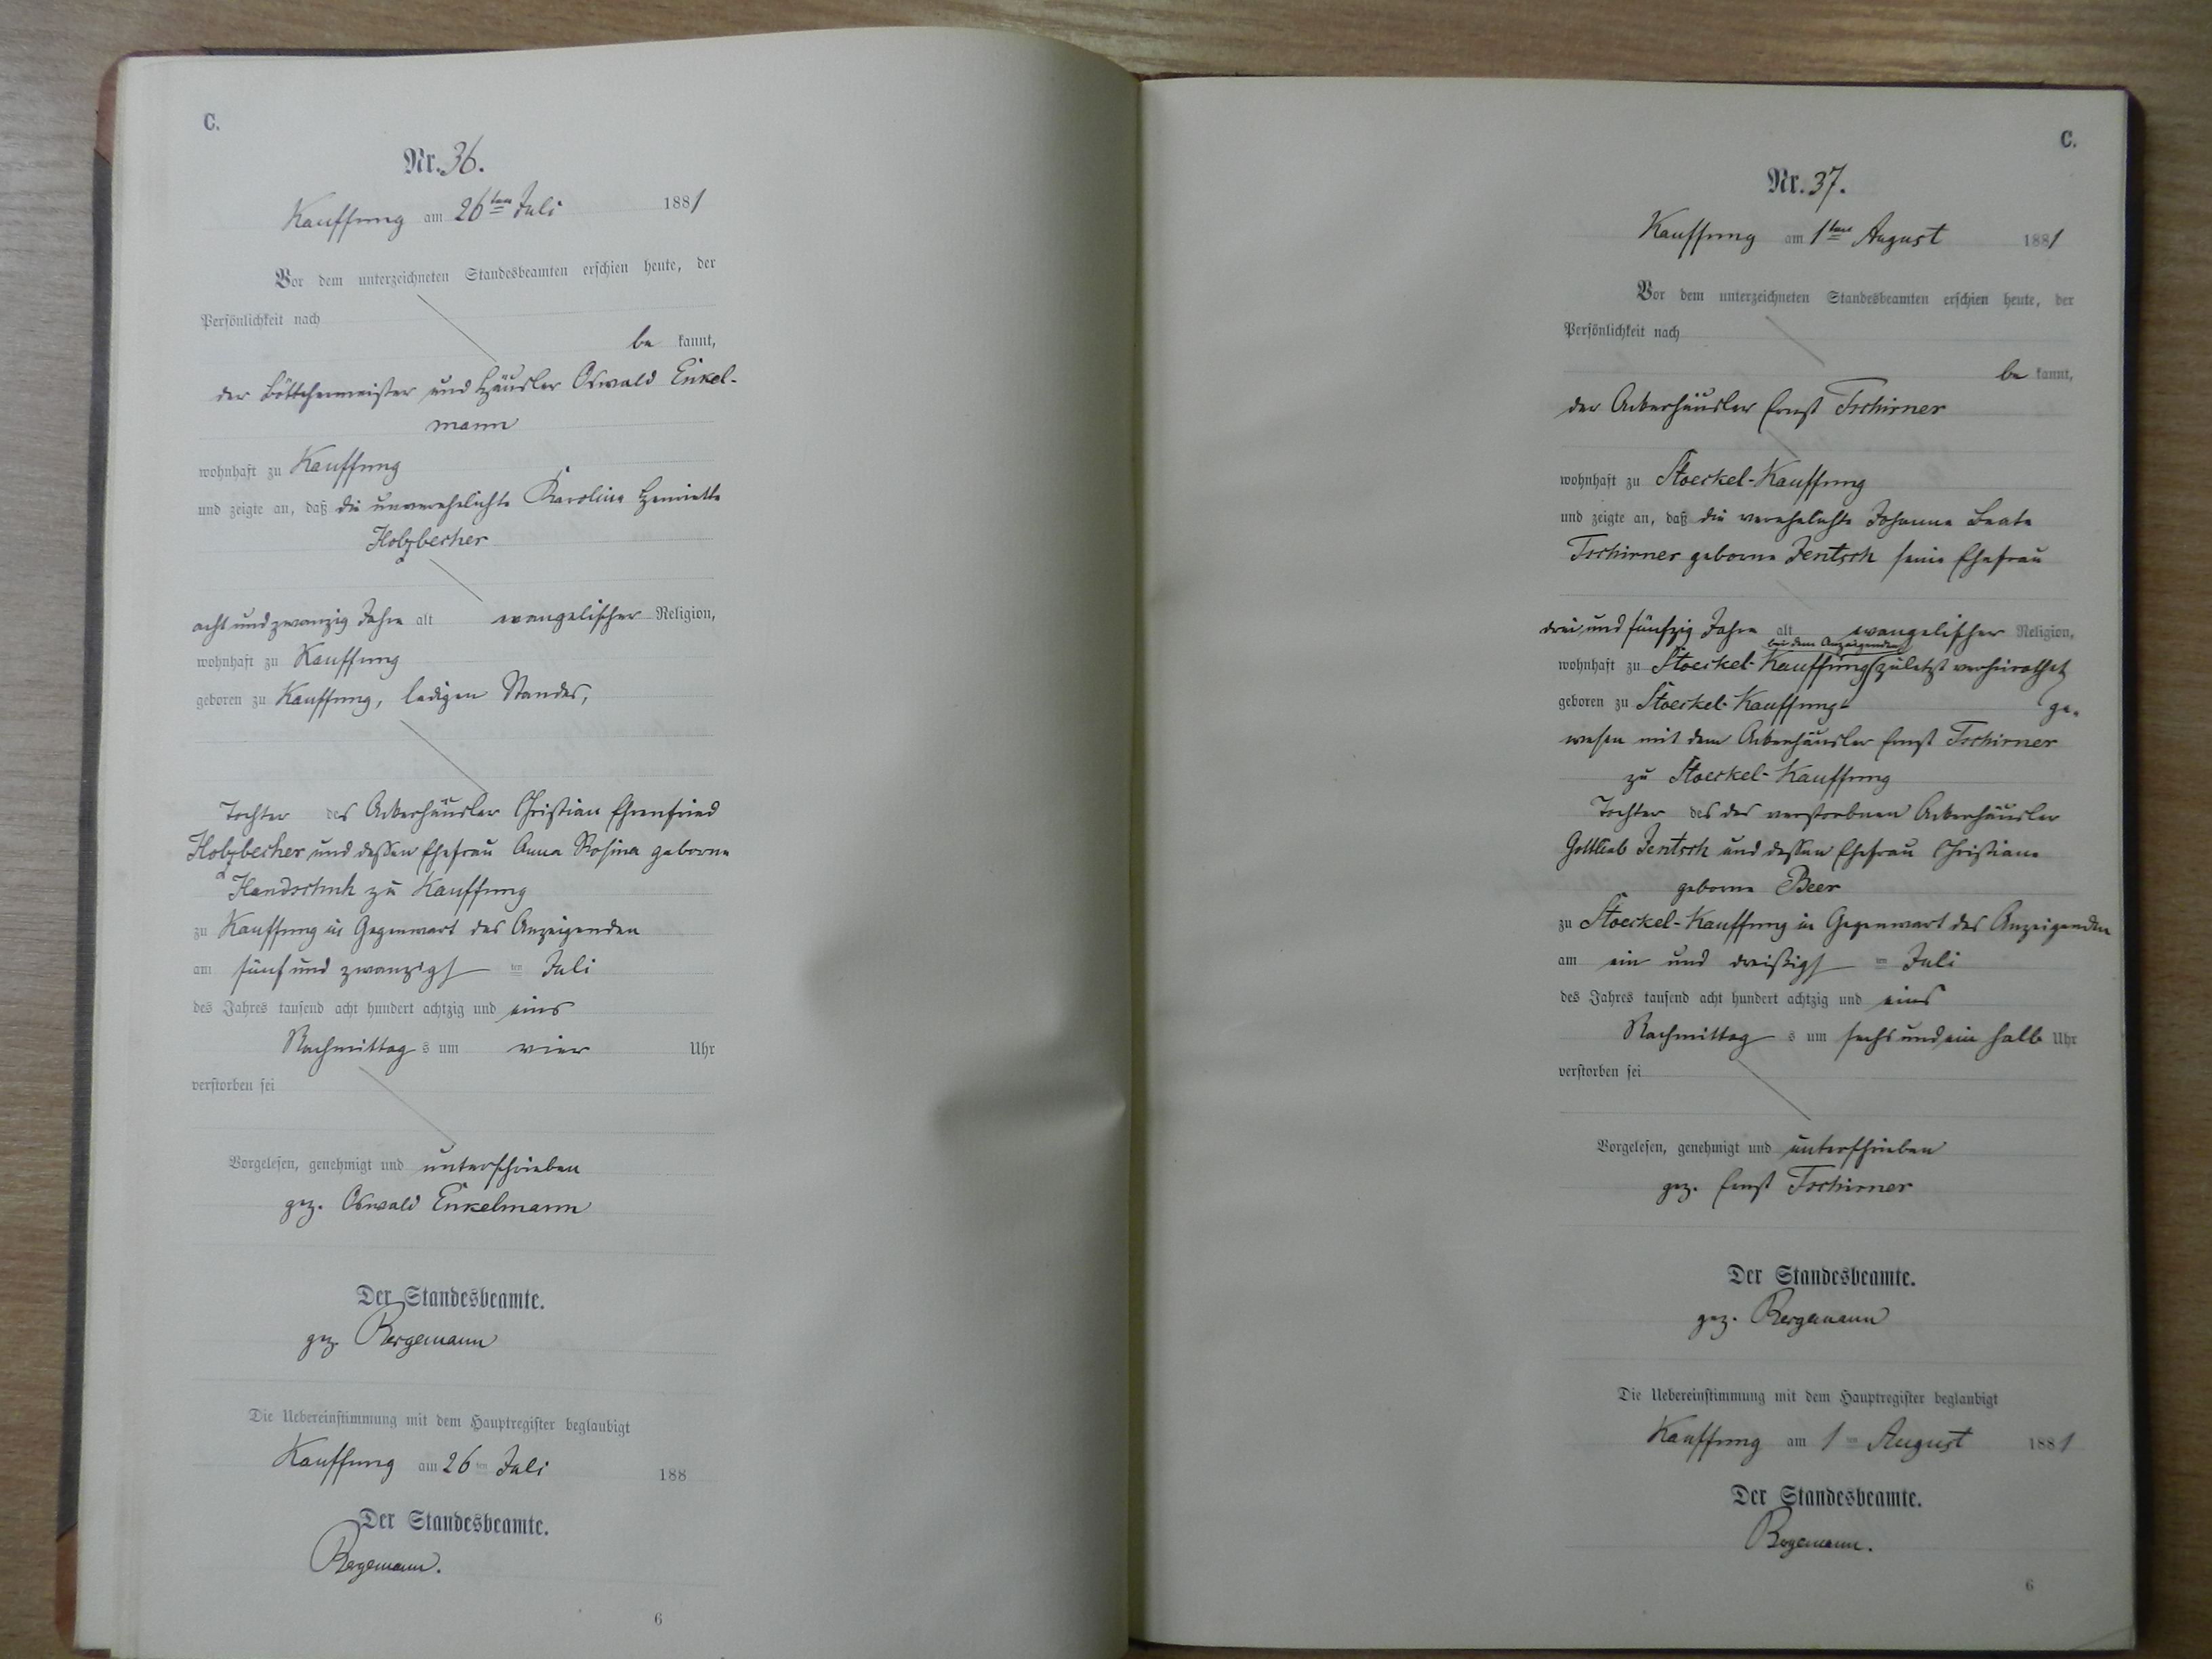 C.
Nr. 36.
Kauffung am 26ten Juli 1881
Vor dem unterzeichneten Standesbeamten erschien heute, der
Persönlichkeit nach
be kannt,
der Böttchermeister und Häusler Oswald Enkel-
mann
wohnhaft zu Kauffung
und zeigte an, daß die unverehelichte Karoline Henriette
Holzbecher
acht und zwanzig Jahre alt evangelischer Religion,
wohnhaft zu Kauffung
geboren zu Kauffung, ledigen Standes,
Tochter des Ackerhäusler Christian Ehrenfried
Holzbecher und dessen Ehefrau Anna Rosina geborne
Handschuh zu Kauffung
zu Kauffung in Gegenwart des Anzeigenden
am fünf und zwanzigsten Juli
des Jahres tausend acht hundert achtzig und eins
Nachmittags um vier Uhr
verstorben sei
Vorgelesen, genehmigt und unterschrieben
gez. Oswald Enkelmann
Der Standesbeamte.
gez. Bergemann
Die Uebereinstimmung mit dem Hauptregister beglaubigt
Kauffung am 26ten Juli 188
Der Standesbeamte.
Bergemann.
6
C.
Nr. 37.
Kauffung am 1ten August 1881
Vor dem unterzeichneten Standesbeamten erschien heute, der
Persönlichkeit nach
be kannt,
der Ackerhäusler Ernst Tschirner
wohnhaft zu Stoeckel-Kauffung
und zeigte an, daß die verehelichte Johanne Beate
Tschirner geborne Jentsch seine Ehefrau
drei und fünfzig Jahre alt evangelischer Religion,
bei dem Anzeigenden
wohnhaft zu Stoeckel-Kauffung zuletzt verheirathet
geboren zu Stoeckel-Kauffung ge-
wesen mit dem Ackerhäusler Ernst Tschirner
zu Stoeckel-Kauffung
Tochter des des verstorbnen Ackerhäusler
Gottlieb Jentsch und dessen Ehefrau Christiane
geborne Beer
zu Stoeckel-Kauffung in Gegenwart des Anzeigenden
am ein und dreißigsten Juli
des Jahres tausend acht hundert achtzig und eins
Nachmittags um sechs und ein halb Uhr
verstorben sei
Vorgelesen, genehmigt und unterschrieben
gez. Ernst Tschirner
Der Standesbeamte.
gez. Bergemann
Die Uebereinstimmung mit dem Hauptregister beglaubigt
Kauffung am 1ten August 1881
Der Standesbeamte.
Bergemann.
6